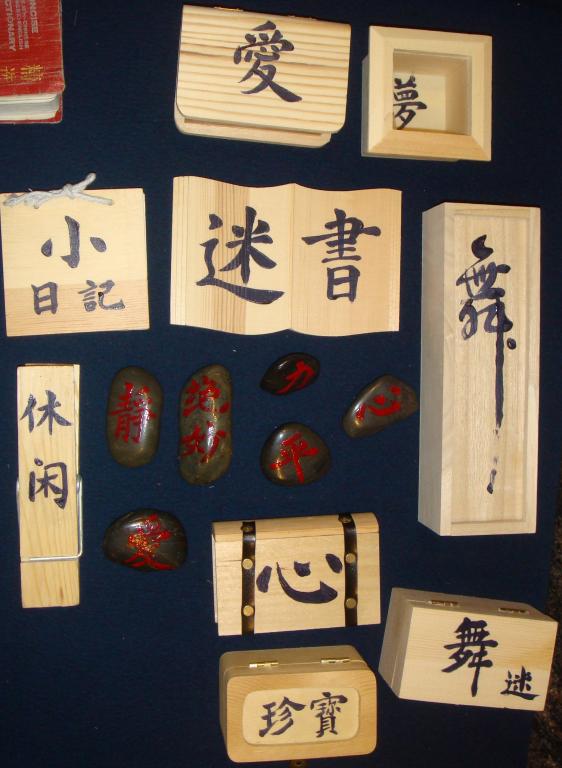 CONCISE
DICTIONARY
愛
夢
小
日記
迷書
舞
休
闲
静
绝
妙
力
心
平
愛
心
舞
迷
珍寶